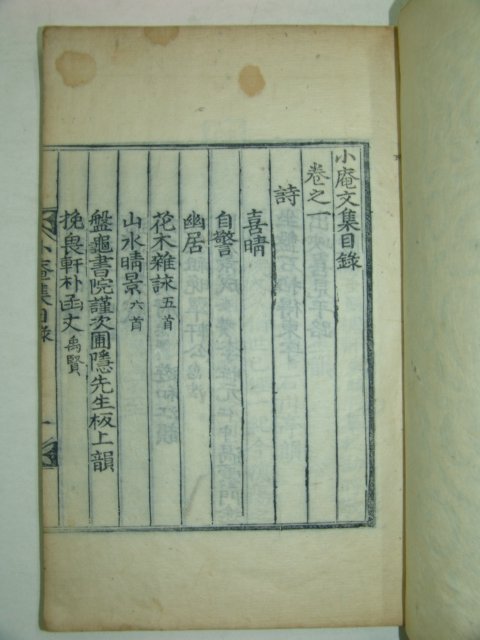 小庵文集目錄
卷之一
詩
喜晴
自警
幽居
花木雜詠五首
山水晴景六首
盤龜書院謹次圃隱先生板上韻
挽愚軒朴函丈禹賢
小庵集目錄
一